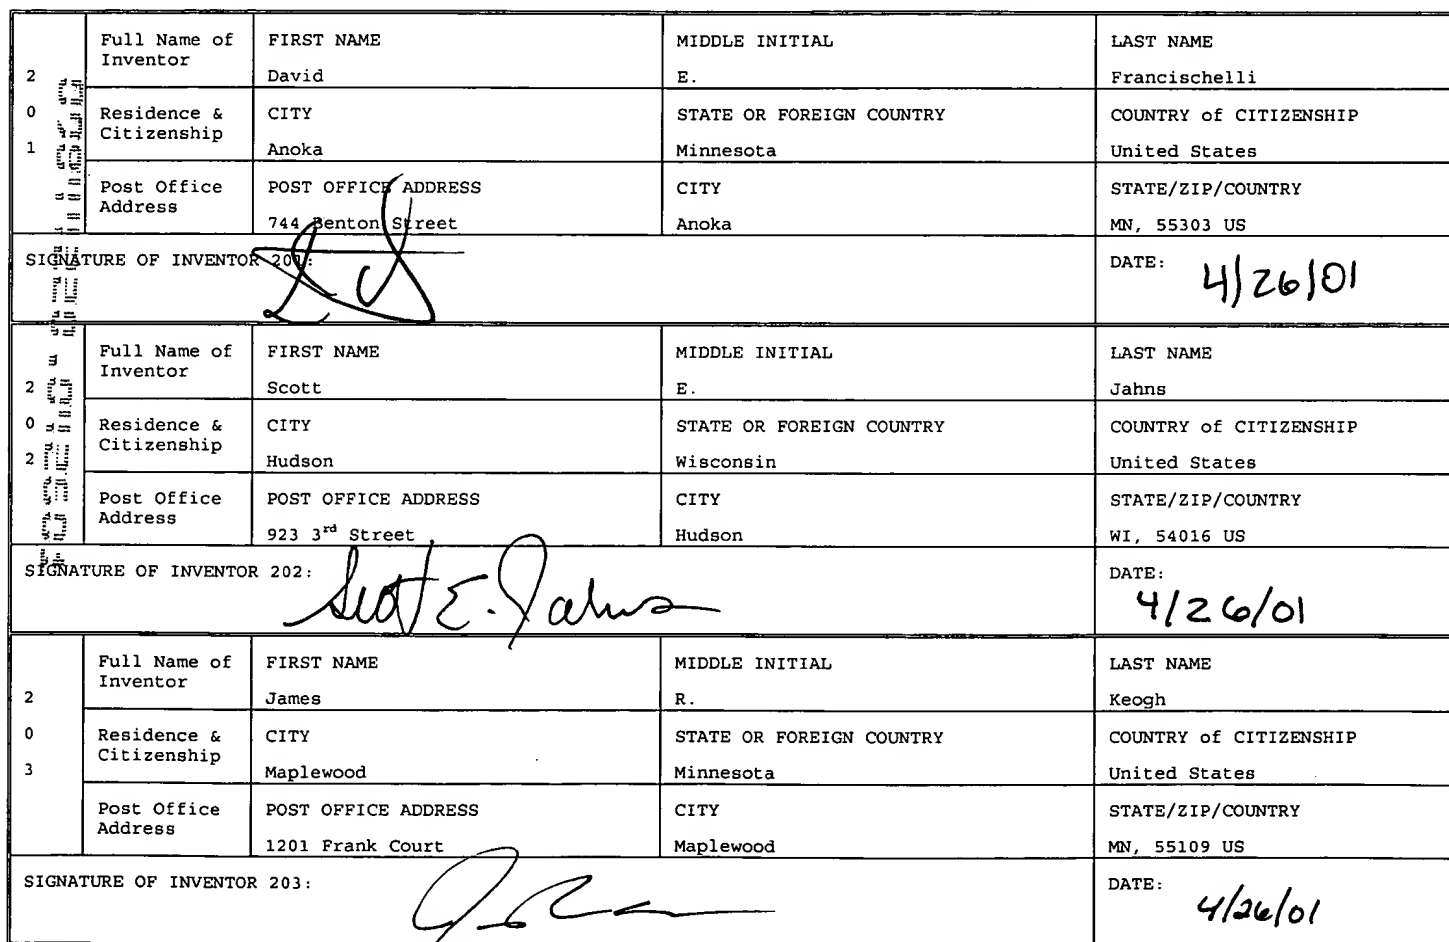 2
0
1
Full Name of Inventor
FIRST NAME
David
MIDDLE INITIAL
E.
LAST NAME
Francischelli
Residence & Citizenship
CITY
Anoka
STATE OR FOREIGN COUNTRY
Minnesota
COUNTRY of CITIZENSHIP
United States
Post Office Address
POST OFFICE ADDRESS
744 Benton Street
CITY
Anoka
STATE/ZIP/COUNTRY
MN, 55303 US
SIGNATURE OF INVENTOR 201:
DATE:
4/26/01
2
0
2
Full Name of Inventor
FIRST NAME
Scott
MIDDLE INITIAL
E.
LAST NAME
Jahns
Residence & Citizenship
CITY
Hudson
STATE OR FOREIGN COUNTRY
Wisconsin
COUNTRY of CITIZENSHIP
United States
Post Office Address
POST OFFICE ADDRESS
923 3rd Street
CITY
Hudson
STATE/ZIP/COUNTRY
WI, 54016 US
SIGNATURE OF INVENTOR 202:
Scott E. Jahns
DATE:
4/26/01
2
0
3
Full Name of Inventor
FIRST NAME
James
MIDDLE INITIAL
R.
LAST NAME
Keogh
Residence & Citizenship
CITY
Maplewood
STATE OR FOREIGN COUNTRY
Minnesota
COUNTRY of CITIZENSHIP
United States
Post Office Address
POST OFFICE ADDRESS
1201 Frank Court
CITY
Maplewood
STATE/ZIP/COUNTRY
MN, 55109 US
SIGNATURE OF INVENTOR 203:
DATE:
4/26/01